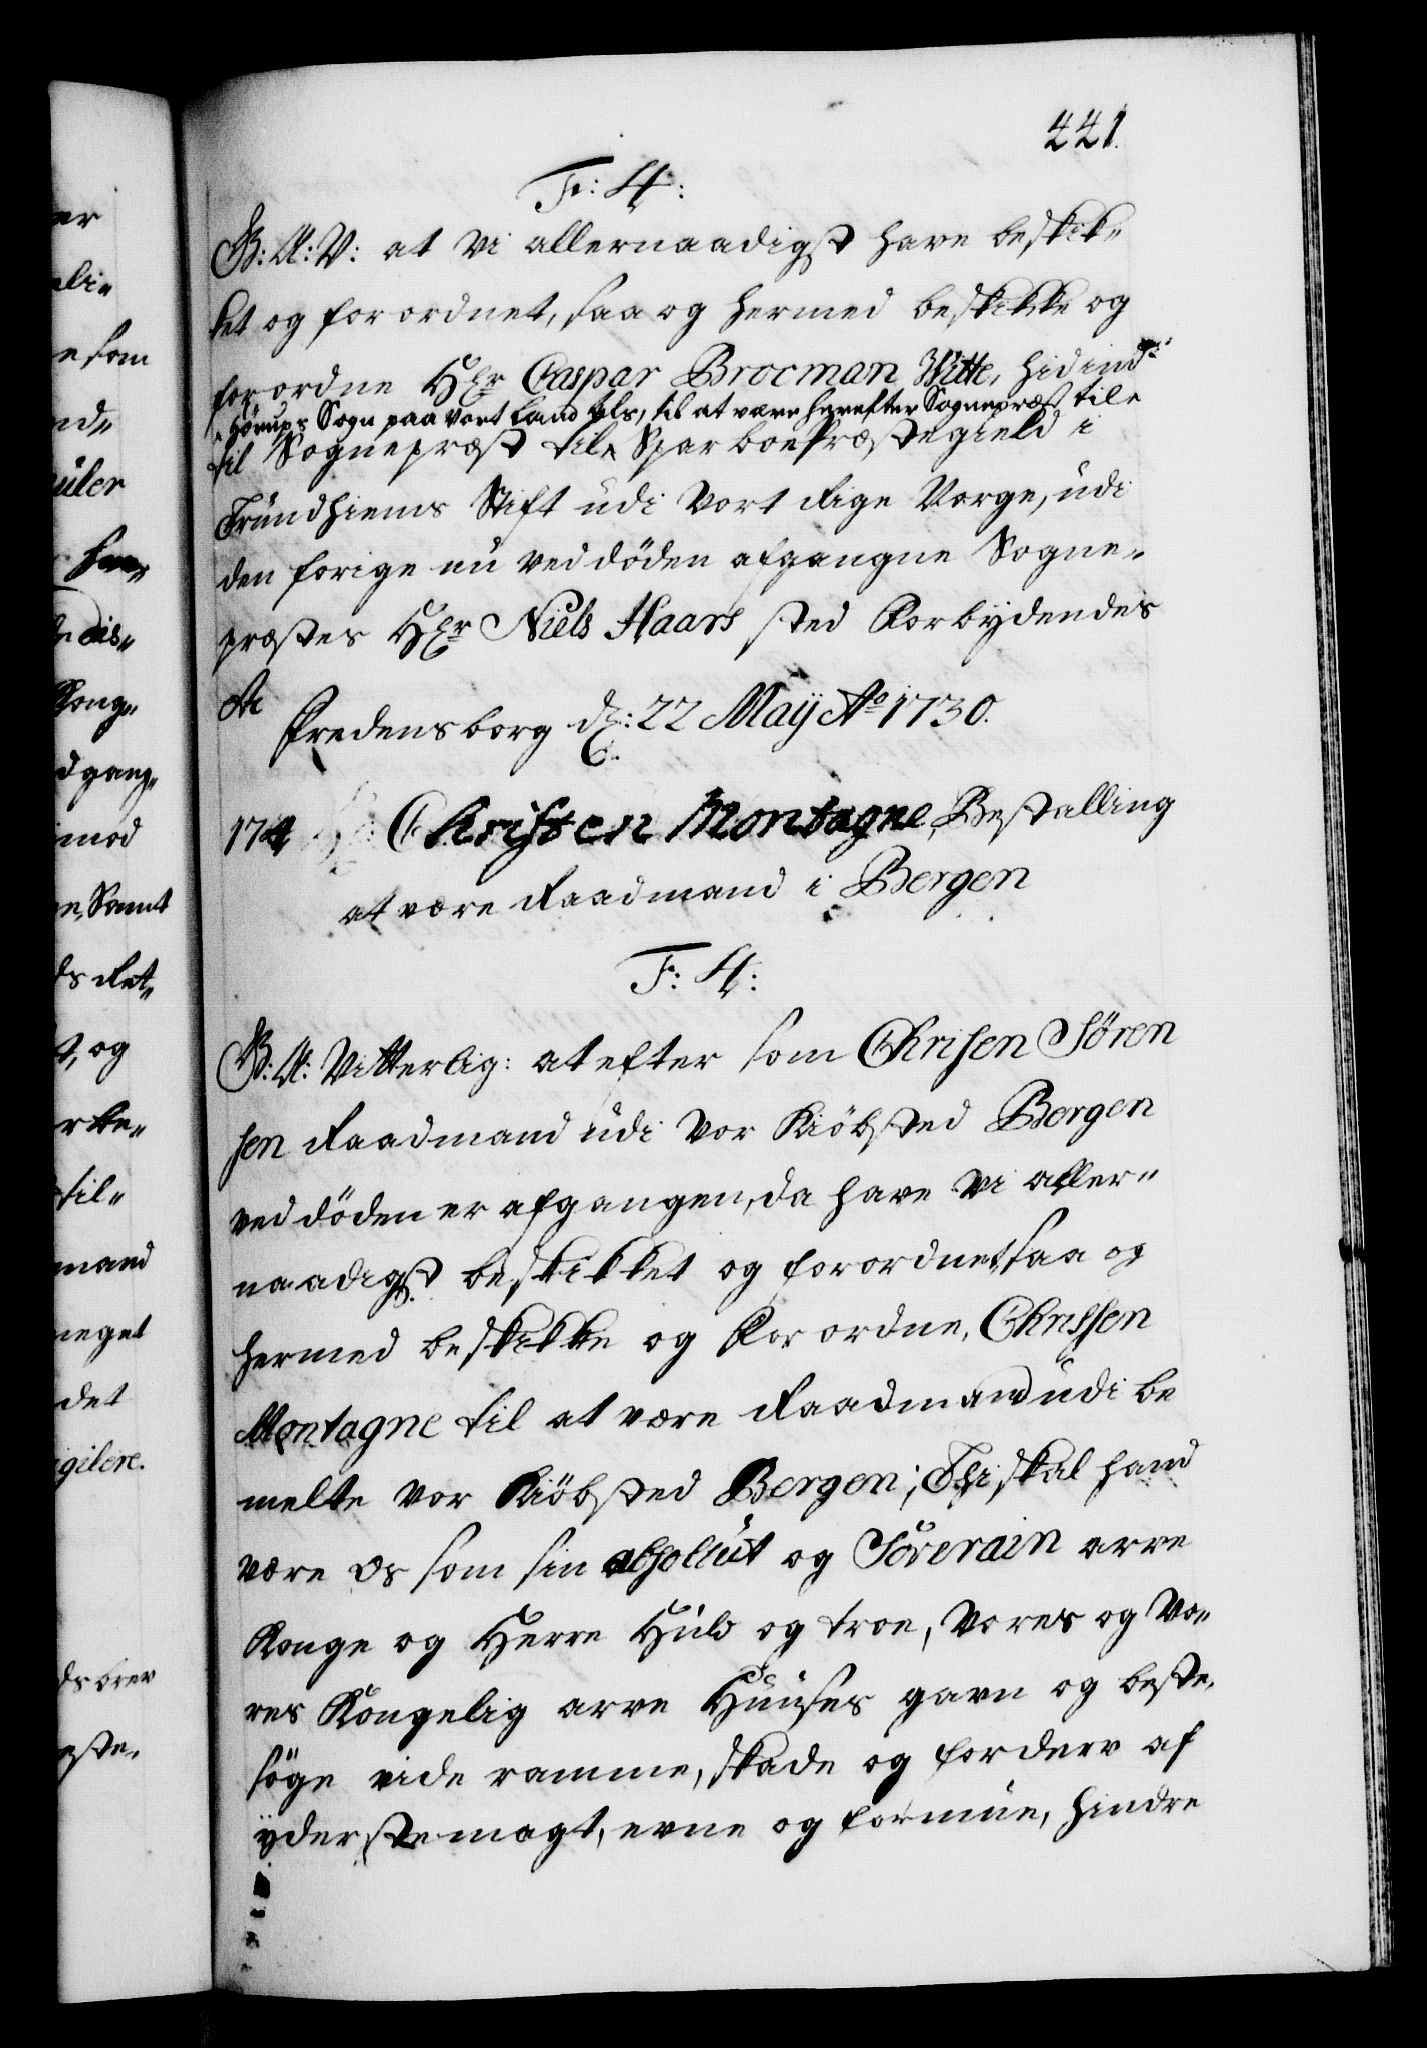 441.
F: 4:
G: A: V: at Vi allernaadigst have beskik„
ket og forordnet, saa og hermed beskikke og
forordne Hr Caspar Brocman Witte, hid ind„
Hörups Sogn paa vort Land Als, til at være herefter Sognepræst til
til Sognepræst til Sparboe Præstegield i
Trundhiems Stift udi vort Rige Norge, udi
den forige nu ved döden afgangne Sogne„
præstes Hr Niels Haars sted Forbÿdendes
etc
Fredensborg d: 22 Maÿ Ao 1730.
174 Christen Montagne, Bestalling
at være Raadmand i Bergen
F: 4:
G: A: Vitterlig: at efter som Chrisen Sören
sen Raadmand udi vor Kiöbsted Bergen
ved döden er afgangen, da have Vi aller„
naadigst beskikket og forordnet, saa og
hermed beskikke og Forordne, Christen
Montagne til at være Raadmand udi be
melte vor Kiöbsted Bergen; Thi skal hand
være Os som sin absolut og Söverain arve
Konge og Herre Huld og troe, Vores og Vo„
res Kongelig arve Huuses gavn og beste,
söge vide ramme, skade og forderv af
ÿderste magt, evne og formue, hindre
er
som
uler
Kong„
dgang„
imod
Samt
ds Ret„
t, og
til„
mand
meget
det
igilere.
ds brev